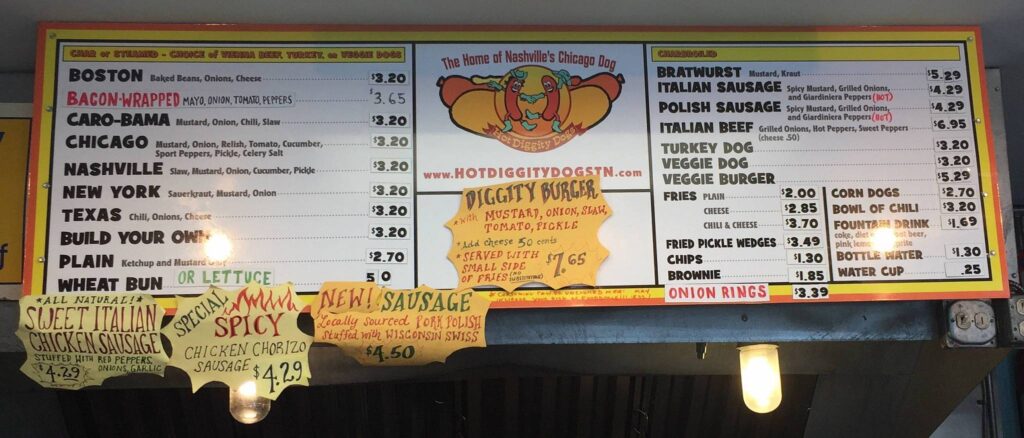 CHAR or STEAMED - CHOICE of VIENNA BEEF, TURKEY, or VEGGIE DOGS
BOSTON Baked Beans, Onions, Cheese $3.20
BACON-WRAPPED MAYO, ONION, TOMATO, PEPPERS $3.65
CARO-BAMA Mustard, Onion, Chili, Slaw $3.20
CHICAGO Mustard, Onion, Relish, Tomato, Cucumber, $3.20
Sport Peppers, Pickle, Celery Salt
NASHVILLE Slaw, Mustard, Onion, Cucumber, Pickle $3.20
NEW YORK Sauerkraut, Mustard, Onion $3.20
TEXAS Chili, Onions, Cheese $3.20
BUILD YOUR OWN $3.20
PLAIN Ketchup and Mustard $2.70
WHEAT BUN OR LETTUCE 50
The Home of Nashville's Chicago Dog
Hot Diggity Dogs
www.HOTDIGGITYDOGSTN.com
DIGGITY BURGER
*WITH MUSTARD, ONION, SLAW,
TOMATO, PICKLE
*Add cheese 50 cents
*SERVED WITH
SMALL SIDE
OF FRIES (NO SUBSTITUTIONS)
$7.65
CHARBROILED
BRATWURST Mustard, Kraut $5.29
ITALIAN SAUSAGE Spicy Mustard, Grilled Onions, $4.29
and Giardiniera Peppers (HOT)
POLISH SAUSAGE Spicy Mustard, Grilled Onions, $4.29
and Giardiniera Peppers (HOT)
ITALIAN BEEF Grilled Onions, Hot Peppers, Sweet Peppers $6.95
(cheese .50)
TURKEY DOG $3.20
VEGGIE DOG $3.20
VEGGIE BURGER $5.29
FRIES PLAIN $2.00
CHEESE $2.85
CHILI & CHEESE $3.70
FRIED PICKLE WEDGES $3.49
CHIPS $1.30
BROWNIE $1.85
ONION RINGS $3.39
CORN DOGS $2.70
BOWL OF CHILI $3.20
FOUNTAIN DRINK $1.69
coke, diet beer,
pink
BOTTLE WATER $1.30
WATER CUP .25
*ALL NATURAL!*
SWEET ITALIAN
CHICKEN SAUSAGE
STUFFED WITH RED PEPPERS,
ONIONS, GARLIC
$4.29
SPECIAL
SPICY
CHICKEN CHORIZO
SAUSAGE $4.29
NEW! SAUSAGE
Locally Sourced PORK POLISH
Stuffed with WISCONSIN SWISS
$4.50